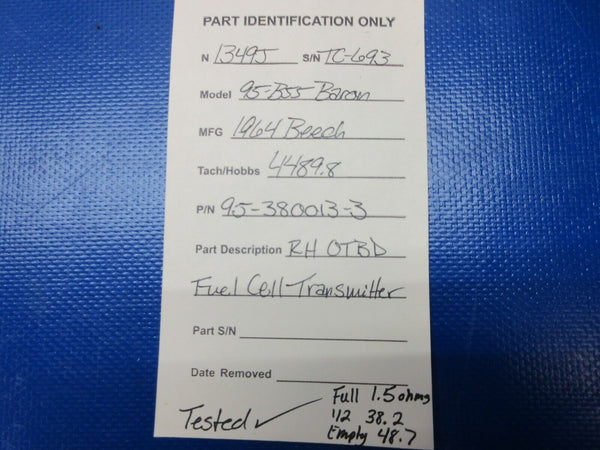 PART IDENTIFICATION ONLY
N 1349J S/N TC-693
Model 95-B55 Baron
MFG 1964 Beech
Tach/Hobbs 4489.8
P/N 95-380013-3
Part Description RH OTBD
Fuel Cell Transmitter
Part S/N
Date Removed
Tested ✓
Full 1.5 ohms
1/2 38.2
Empty 48.7